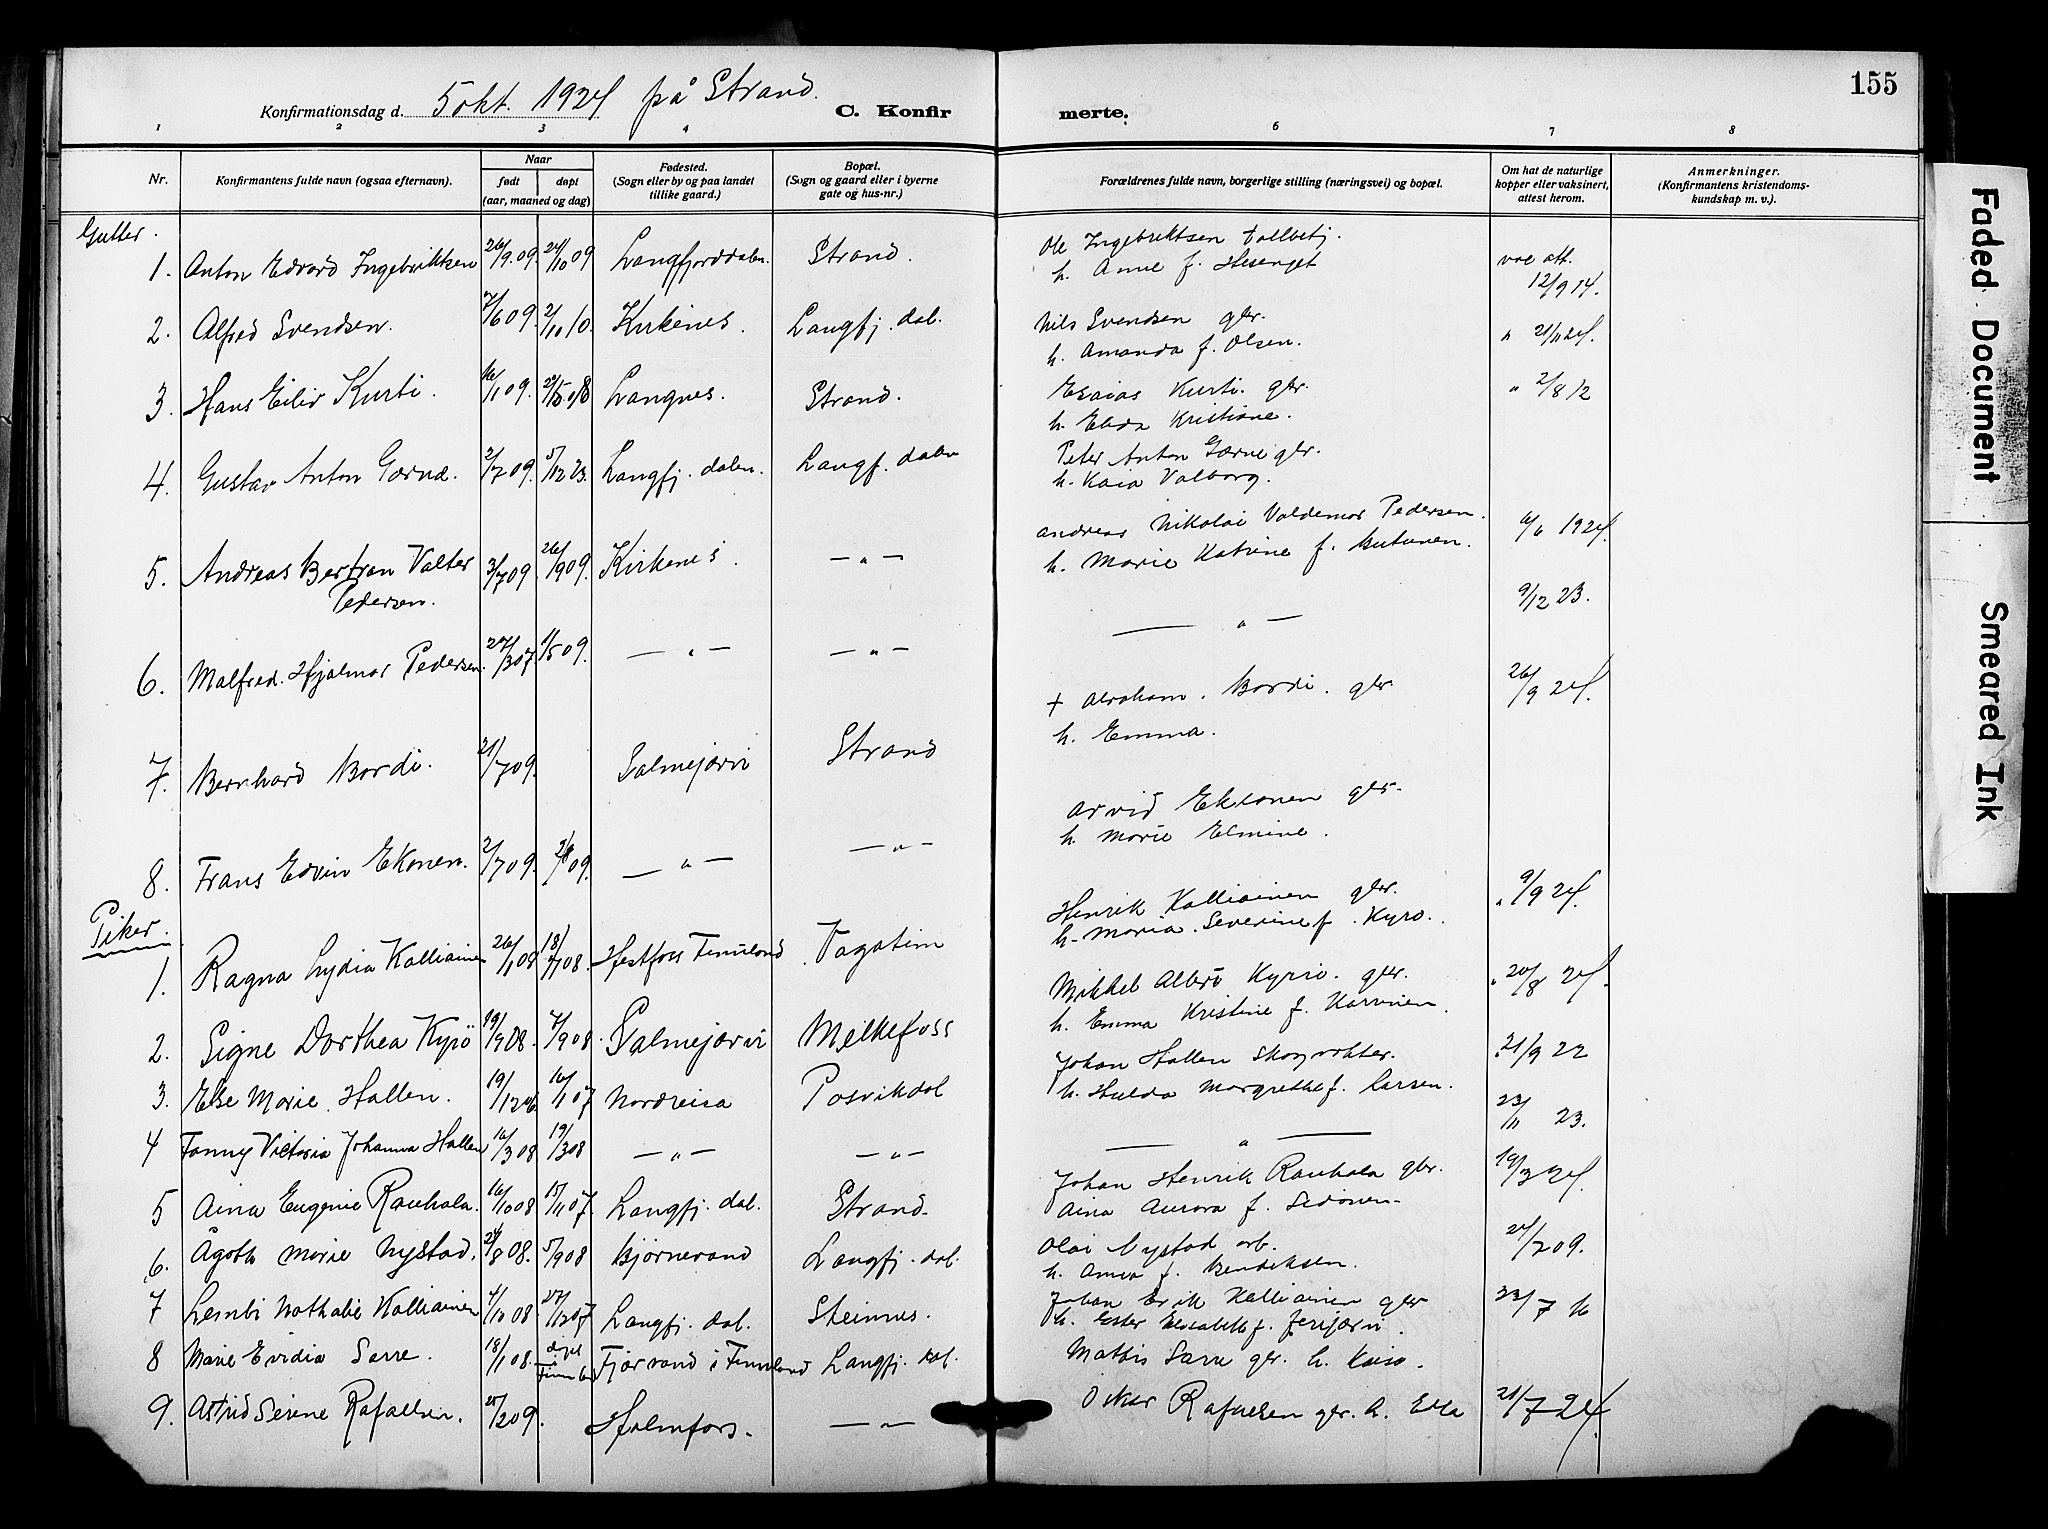 155
Konfirmationsdag d. 5 okt. 1924 på Strand.
C. Konfir merte.
1 2 3 4 6 7 8
Nr.
Konfirmantens fulde navn (ogsaa efternavn).
Naar
født
døpt
(aar, maaned og dag)
Fødested.
(Sogn eller by og paa landet
tillike gaard.)
Bopæl.
(Sogn og gaard eller i byerne
gate og hus-nr.)
Forældrenes fulde navn, borgerlige stilling (næringsvei) og bopæl.
Om hat de naturlige
kopper eller vaksinert,
attest herom.
Anmerkninger.
(Konfirmantens kristendoms-
kundskap m. v.).
Gutter.
1. Anton Edvard Ingebriktsen 26/9.09. 24/10 09 Langfjorddalen. Strand. Ole Ingebriktsen tollbetj. vac att.
h. Anne f. 12/9 14.
2. Alfred Svendsen. 7/6 09. 2/11 10. Kirkenes. Langfj. dal. Nils Svendsen gbr. " 21/11 24.
h. Amanda f. Olsen.
3. Hans Eiliv Kurti. 16/1 09. Langnes. Strand. Esaias Kurti. gbr. " 2/8 12
h. Elida Kristiane.
4. Gustav Anton Gærne. 2/7 09. 5/12 23. Langfj. dalen. Langf. dalen Peter Anton Gærne gbr.
h. Kaia Valborg.
5. Andreas Bertran Valter 3/7 09. 26/9 09. Kirkenes. — " — Andreas Nikolai Valdemar Pedersen. 6/6 1924.
Pedersen. h. Marie Katrine f.
6. Malfred Hjalmar Pedersen. 27/3 07. 1/5 09. — " — — " — — " — 9/12 23.
7. Bernhard Bordi. 21/7 09. Salmejærvi Strand + Abraham Bordi. gbr. 26/9 24.
h. Emma.
8. Frans Edvin Ekonen. 2/7 09. — " — — " — Arvid gbr.
h. Marie Elmine.
Piker.
1. Ragna Lydia Kalliainen 26/1 08 18/7 08. Finnland Vagatim Henrik Kalliainen gbr. " 9/9 24.
h. Maria Severine f. Kyrö.
2. Signe Dorthea Kyrö 19/9 08. 7/9 08. Salmejærvi Melkefoss Mikkel Albert Kyrö. gbr. " 20/8 24.
h. Emma Kristine f. Karvinen.
3. Else Marie Hallen. 19/12 06. 16/1 07 Nordreisa Pasvikdal Johan Hallen Skogvokter. 21/9 22
h. Hulda Margrethe f. Larsen.
4 Fanny Victoria Johanna Hallen 16/3 08 19/3 08 — " — — " — — " — 23/11 23.
5 Aina Eugenie Rauhala. 16/10 08 15/11 07. Langfj. dal. Strand. Johan Henrik Rauhala gbr. 19/3 24.
Aina Aurora f.
6. Ågoth Marie Nystad. 8 08. 5/9 08 Bjørnevand Langfj. dal. Olai Nystad arb. 2 09.
h. Anna f. Bendiksen.
7 Lembi Nathalie Kalliainen 4/10 08 27/12 07 Langfj. dal. Steinnes. Johan Erik Kalliainen gbr 23/7 16
h. Ester Elisabeth f.
8 Marie Evidia Sarre. 18/1 08. døpt i Finnland i Finnland Langfj. dal. Mathis Sarre gbr. h.
9. Astrid Serine Rafaelsen. 2 09. Holmfors. — " — Oskar Rafaelsen gbr. h. Ella 21/7 24.
Faded Document
Smeared Ink